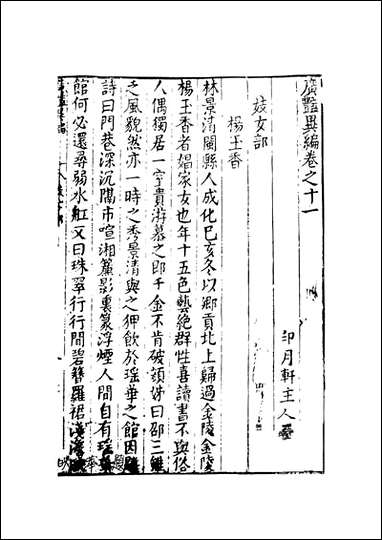 廣豔異編卷之十一
印月軒主人
妓女部
楊玉香
林景清閩縣人成化己亥冬以鄉貢北上歸過金陵金陵
楊玉香者娼家女也年十五色藝絕群性喜讀書不與俗
人偶獨居一室貴游慕之即千金不肯破顏姊曰邵三雖
之風貌然亦一時之秀景清與之狎飲於瑤華之館因題
詩曰門巷深沉隔市喧湘簾影裏篆浮煙人間自有瑤華
館何必還尋弱水船又曰珠翠行行間碧簪羅裙淺澹